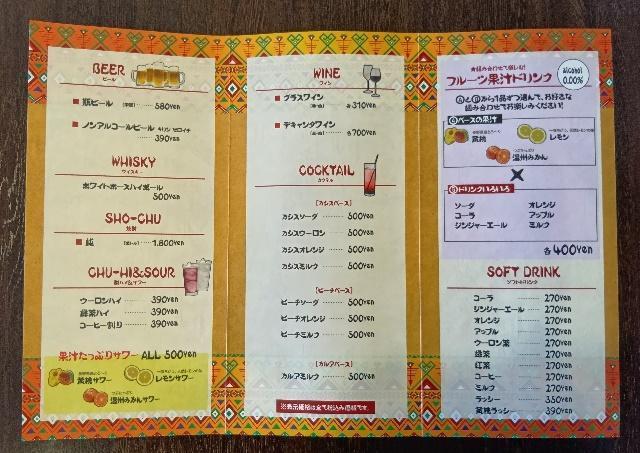 BEER
ビール
瓶ビール (中瓶) 580yen
ノンアルコールビール キリン ゼロイチ
390yen
WHISKY
ウイスキー
ホワイトホースハイボール
500yen
SHO-CHU
焼酎
(ボトル) 1,800yen
CHU-HI&SOUR
酎ハイ&サワー
ウーロンハイ 390yen
緑茶ハイ 390yen
コーヒー割り 390yen
果汁たっぷりサワー ALL 500yen
黄桃サワー
レモンサワー
温州みかんサワー
WINE
ワイン
グラスワイン 各310yen
デキャンタワイン 各700yen
COCKTAIL
カクテル
[カシスベース]
カシスソーダ 500yen
カシスウーロン 500yen
カシスオレンジ 500yen
カシスミルク 500yen
[ピーチベース]
ピーチソーダ 500yen
ピーチオレンジ 500yen
ピーチミルク 500yen
[カルアベース]
カルアミルク 500yen
※表示価格は全て税込み価格です。
組み合わせて楽しむ!
フルーツ果汁ドリンク
alcohol
0.00%
ⒶとⒷから1品ずつ選んで、お好きな
組み合わせでお楽しみください!
Ⓐベースの果汁
黄桃
レモン
温州みかん
×
Ⓑドリンクいろいろ
ソーダ オレンジ
コーラ アップル
ジンジャーエール ミルク
各400yen
SOFT DRINK
ソフトドリンク
コーラ 270yen
ジンジャーエール 270yen
オレンジ 270yen
アップル 270yen
ウーロン茶 270yen
緑茶 270yen
紅茶 270yen
コーヒー 270yen
ミルク 270yen
ラッシー 350yen
黄桃ラッシー 390yen